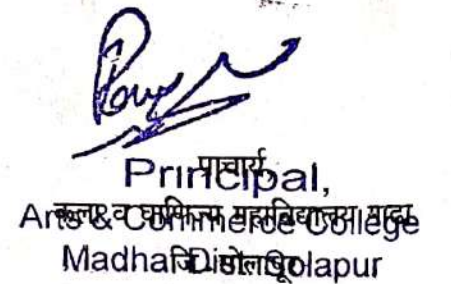 प्राचार्य,
Principal,
कला व वाणिज्य महाविद्यालय माढा
Arts & Commerce College
जि. सोलापूर
Madha Dist. Solapur